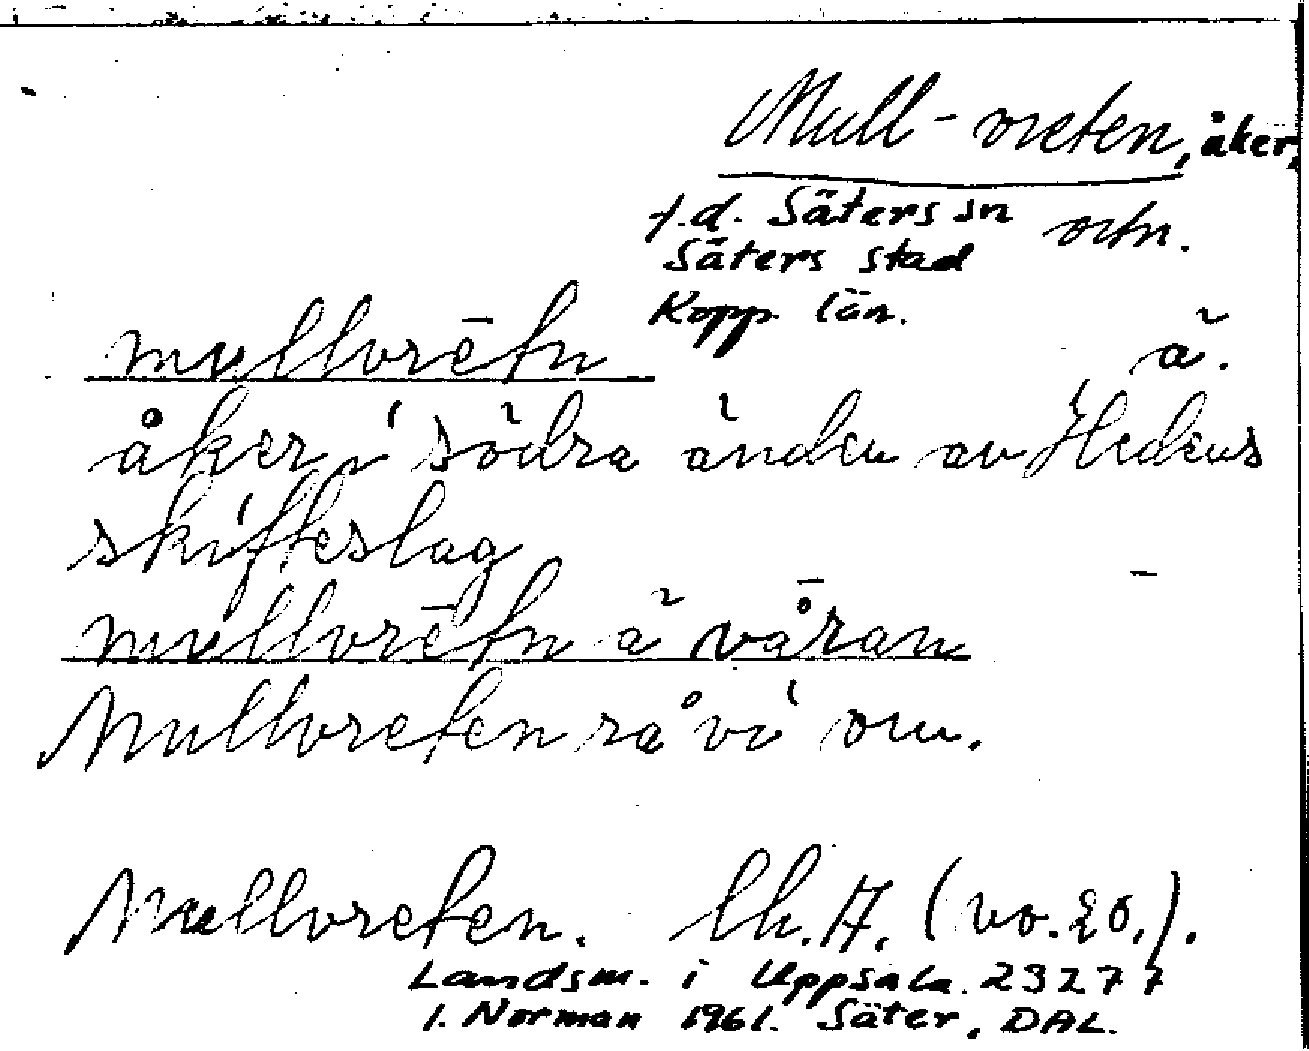 Mull-vreten, åker,
f.d. Säters sn
Säters stad
Kopp. län.
mullvrētn
ä̆.
åker i södra änden av Hedens
skifteslag
mullvrētn ä vā̊ran
Mullvreten rå vi om.
Mullvreten. lh. A. (vo. 20.).
Landsm. i Uppsala. 23277
I. Norman 1961. Säter, DAL.